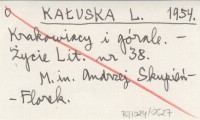 KAŁUSKA L. 1954.
Krakowiacy i górale. -
Życie Lit. nr 38.
M. in. Andrzej Skupień-
- Florek.